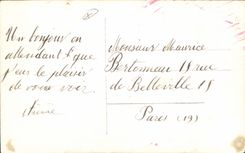 Un bonjour en
attendant que
j'eus le plaisir
de vous voir
Monsieur Maurice
Bertonneau 18 rue
de Belleville 18
Paris (19)